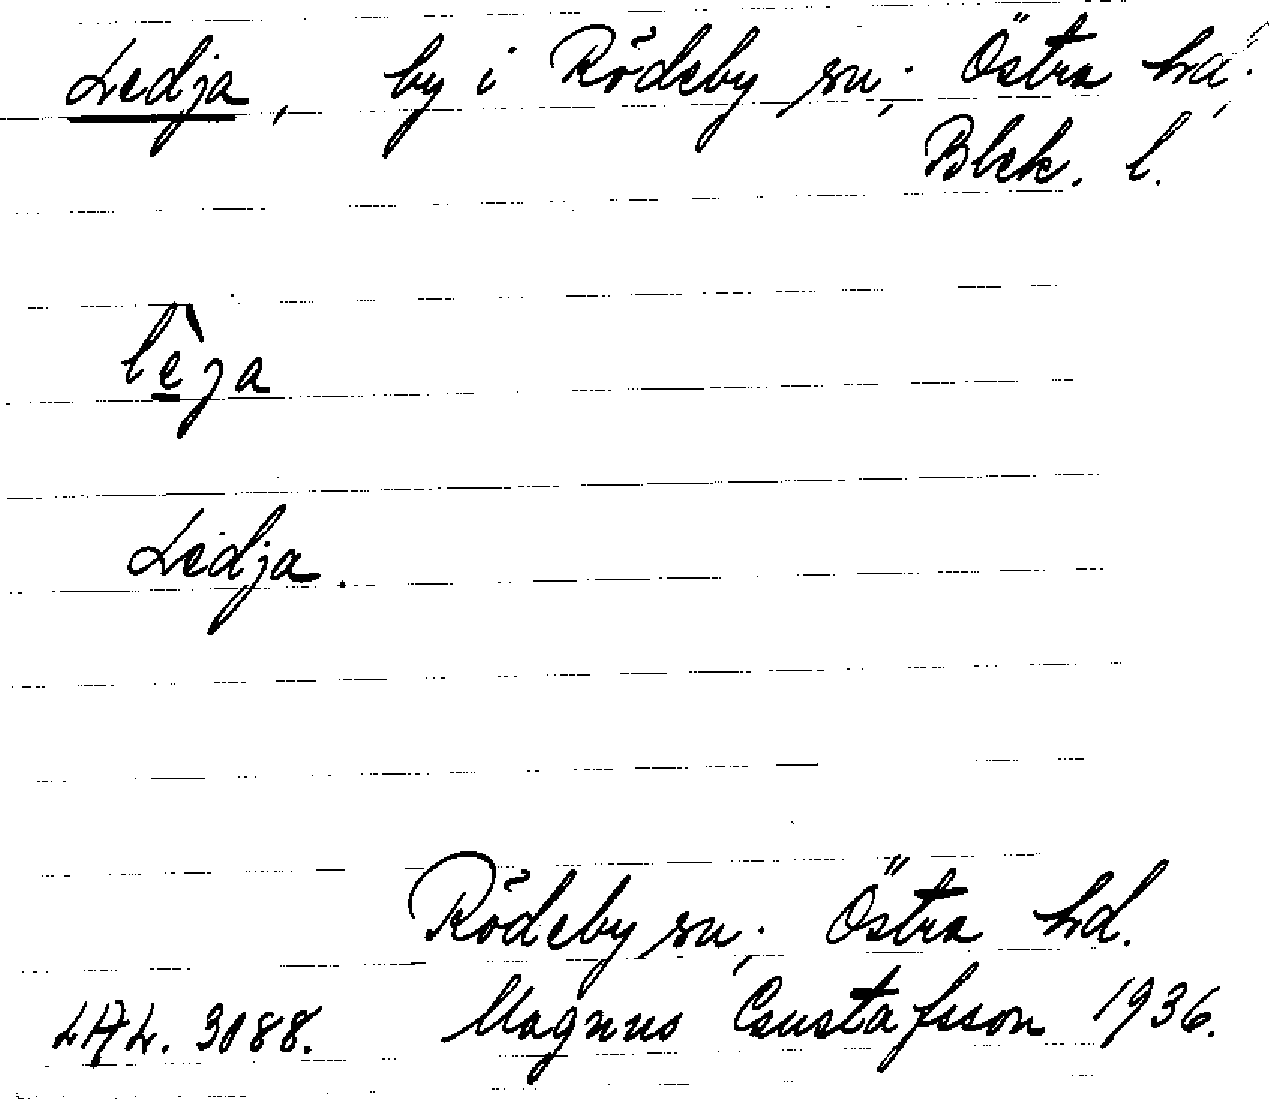 Ledja, by i Rödeby sn; Östra hd;
Blek. l.
lè̱ja
Ledja.
Rödeby sn; Östra hd.
LAL. 3088. Magnus Gustafsson 1936.